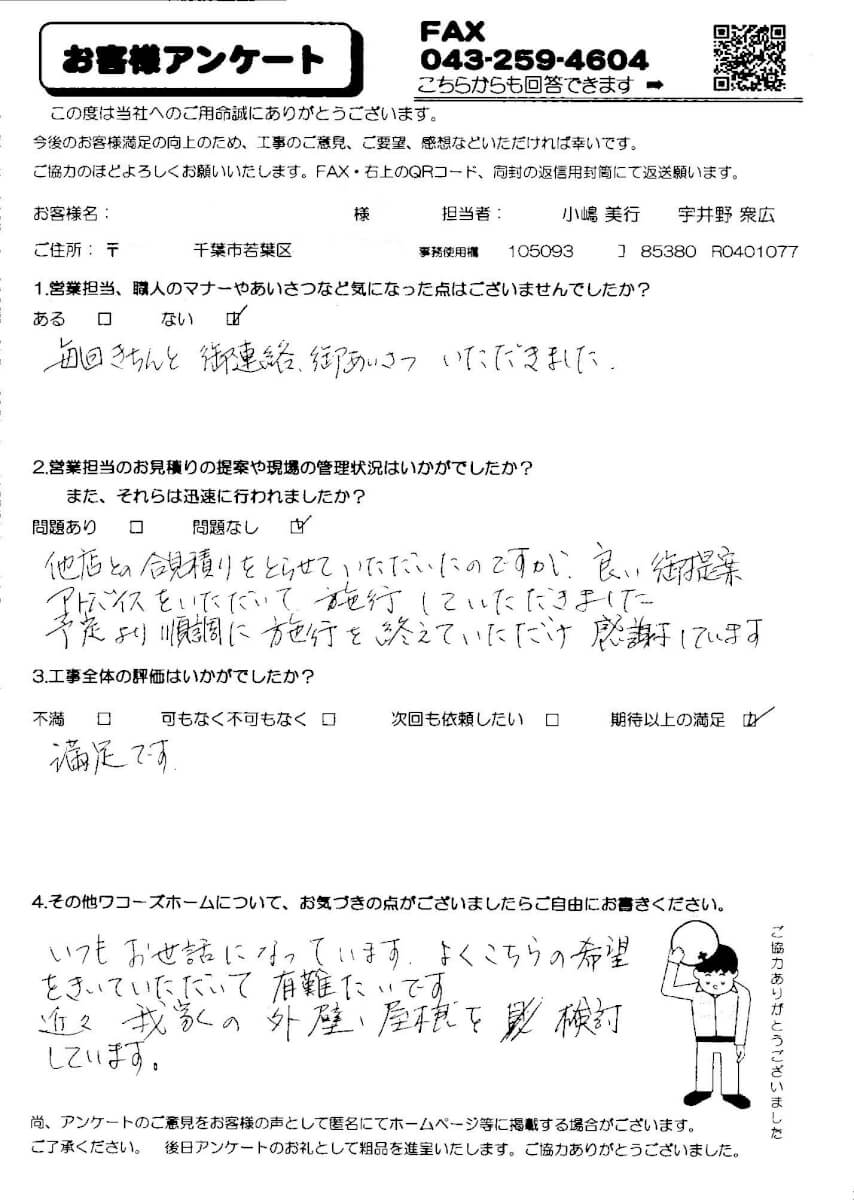 お客様アンケート
FAX
043-259-4604
こちらからも回答できます ➡
この度は当社へのご用命誠にありがとうございます。
今後のお客様満足の向上のため、工事のご意見、ご要望、感想などいただければ幸いです。
ご協力のほどよろしくお願いいたします。FAX・右上のQRコード、同封の返信用封筒にて返送願います。
お客様名： 様 担当者： 小嶋 美行 宇井野 衆広
ご住所：〒 千葉市若葉区 事務使用欄 105093 ] 85380 R0401077
1.営業担当、職人のマナーやあいさつなど気になった点はございませんでしたか？
ある □ ない ☑
毎回きちんと 御連絡、御あいさつ いただきました.
2.営業担当のお見積りの提案や現場の管理状況はいかがでしたか？
また、それらは迅速に行われましたか？
問題あり □ 問題なし ☑
他店との合見積りをとらせていただいたのですが、良い御提案
アドバイスをいただいて 施行していただきました
予定より順調に施行を終えていただけ 感謝しています
3.工事全体の評価はいかがでしたか？
不満 □ 可もなく不可もなく □ 次回も依頼したい □ 期待以上の満足 ☑
満足です.
4.その他ワコーズホームについて、お気づきの点がございましたらご自由にお書きください。
いつもお世話になっています. よくこちらの希望
をきいていただいて 有難たいです
近々 我家の 外壁、屋根を 検討
しています。
ご協力ありがとうございました
尚、アンケートのご意見をお客様の声として匿名にてホームページ等に掲載する場合がございます。
ご了承ください。 後日アンケートのお礼として粗品を進呈いたします。ご協力ありがとうございました。